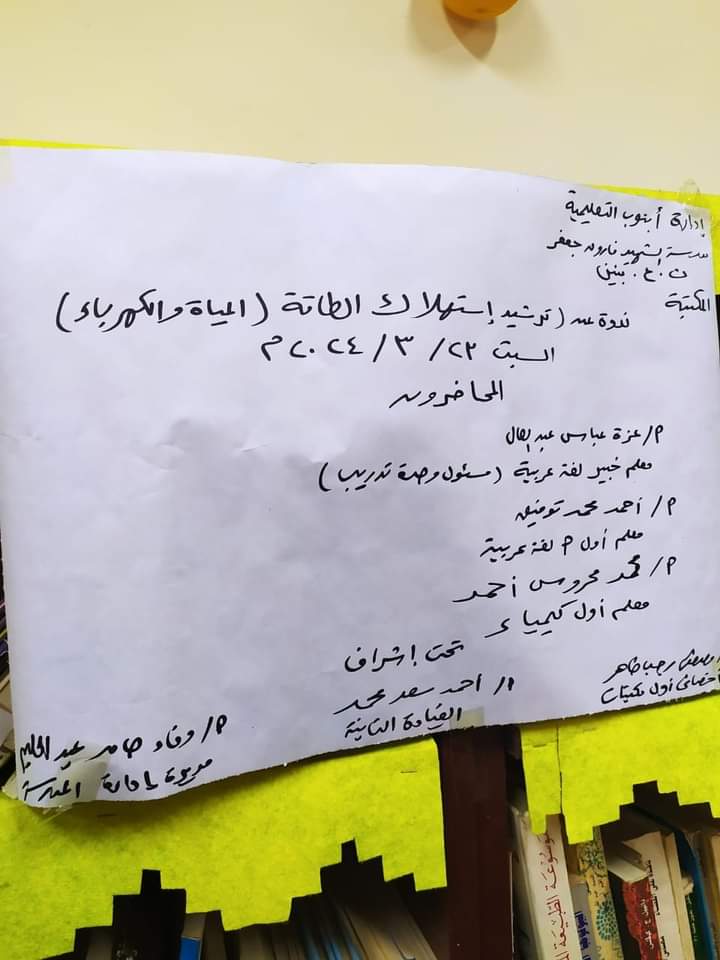 إدارة أبنوب التعليمية
مدرسة الشهيد فاروق جعفر
ث.ع. بنين
المكتبة
ندوة عن (ترشيد إستهلاك الطاقة (المياة والكهرباء)
السبت ٢٣/ ٣/ ٢٠٢٤م
المحاضرون
م/ عزة عباس عبد العال
معلم خبير لغة عربية (مسئول وحدة تدريب)
م/ أحمد محمد توفيق
معلم أول م لغة عربية
م/ محمد محروس أحمد
معلم أول كيمياء
تحت إشراف
رجب طاهر
أخصائى أول مكتبات
ا/ أحمد سعد محمد
القيادة الثانية
م/ وفاء حامد عبد الحليم
مديرة إدارة المدرسة
موسوعة الطبيعة